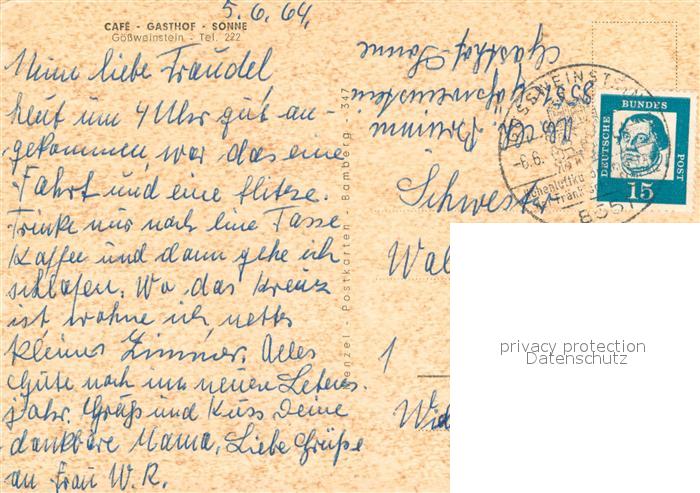 5.6.64,
CAFÉ - GASTHOF - SONNE
Gößweinstein - Tel. 222
Meine liebe Traudel,
heut um 4 Uhr gut an-
gekommen, war das eine
Fahrt und eine Hitze.
Trinke nur noch eine Tasse
Kaffee und dann gehe ich
schlafen. Wo das Kreuz
ist, wohne ich, nettes
kleines Zimmer. Alles
Gute noch im neuen Lebens-
jahr. Gruß und Kuss Deine
dankbare Mama. Liebe Grüße
an Frau W. R.
Postkarten - Bamberg - 347
Gasthof-Sonne
8551 Gössweinstein
Schwester
1
DEUTSCHE
BUNDES
POST
15
-6.6.
8551
privacy protection
Datenschutz